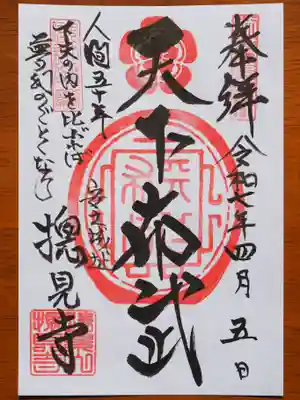 奉拝
令和七年四月五日
天下布武
安土城址
人間五十年
下天の内を比ぶれば
夢幻のごとくなり
摠見寺